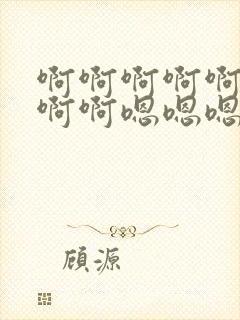 啊啊啊啊啊
啊啊嗯嗯嗯
顾源